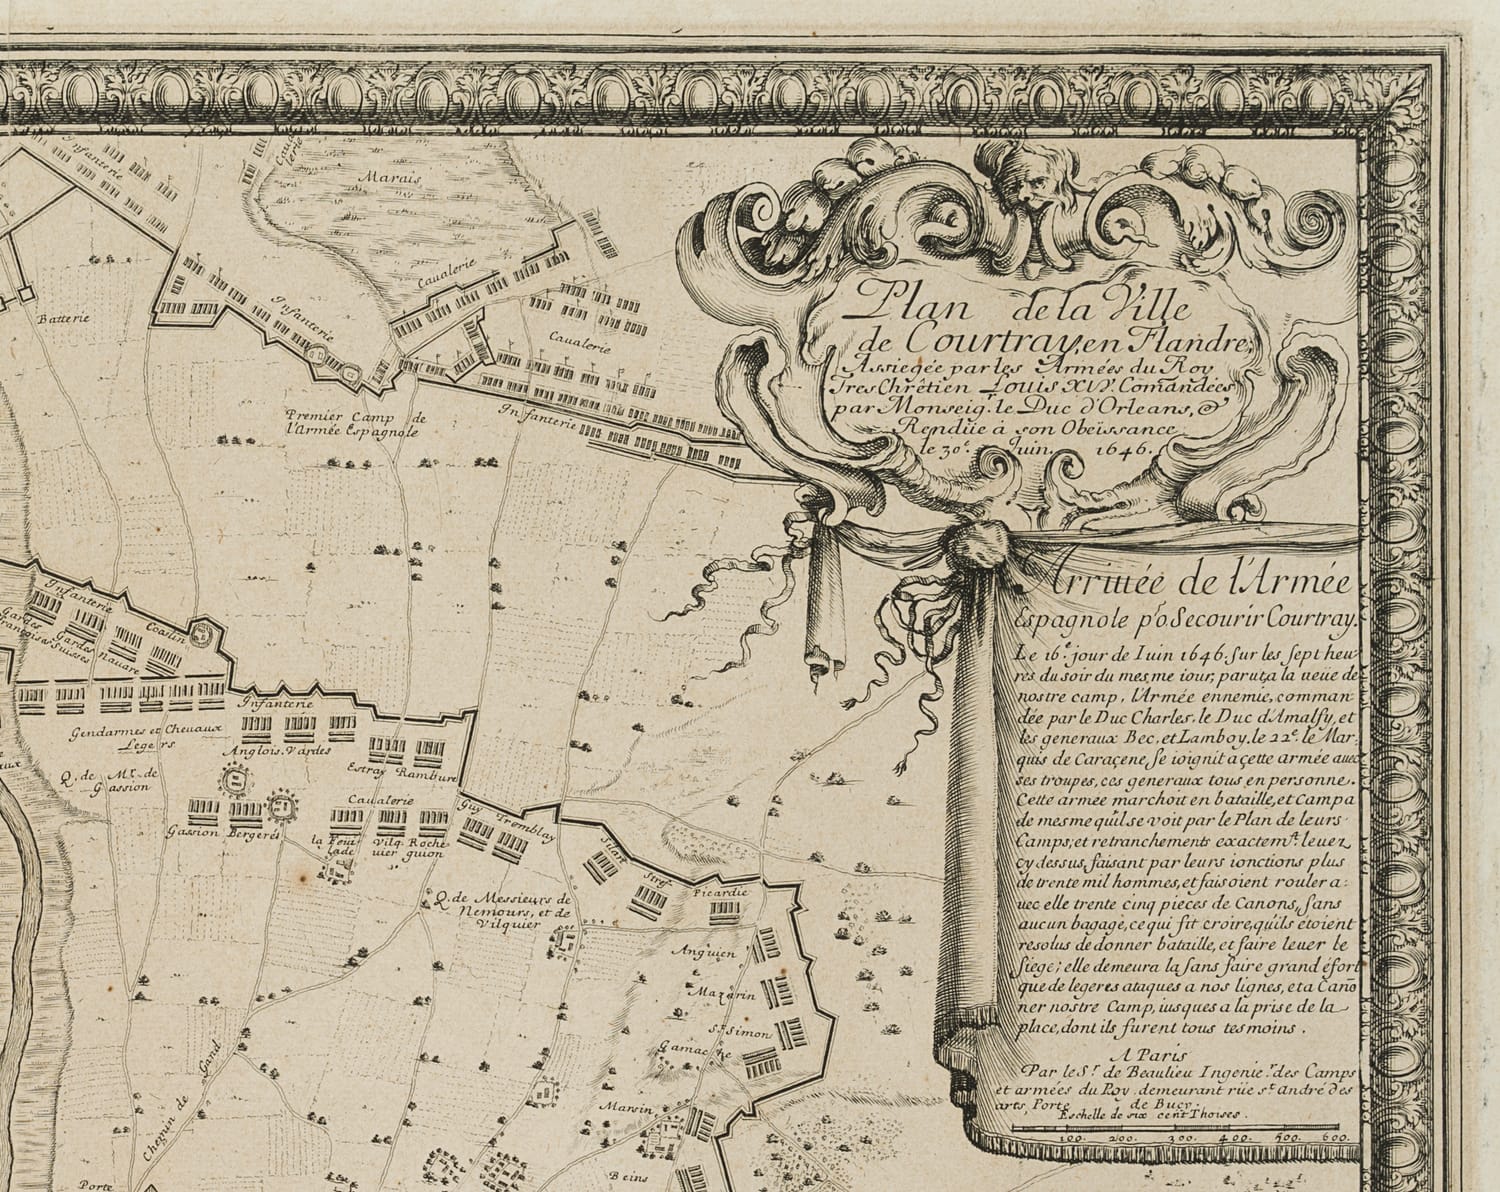 Plan de la Ville
de Courtray, en Flandre,
Assiegée par les Armées du Roy
Tres Chrêtien Louis XIV. Comãndées
par Monseig.r le Duc d'Orleans, &
Rendüe à son Obeïssance
le 30.e Juin. 1646.
Arriuée de l'Armée
Espagnole po.r Secourir Courtray.
Le 16.e jour de Iuin 1646. sur les sept heu-
res du soir du mesme iour, parut a la veüe de
nostre camp, l'Armée ennemie, comman-
dée par le Duc Charles, le Duc d'Amalfy, et
les generaux Bec, et Lamboy, le 22.e le Mar-
quis de Caraçene, se ioignit a çette armée auec
ses troupes, ces generaux tous en personne.
Cette armée marchoit en bataille, et campa
de mesme qu'il se voit par le Plan de leurs
Camps, et retranchements exactem.t leuez
cy dessus, faisant par leurs ionctions plus
de trente mil hommes, et faisoient rouler a-
uec elle trente cinq pieces de Canons, sans
aucun bagage, ce qui fit croire, qu'ils étoient
resolus de donner bataille, et faire leuer le
siege; elle demeura la sans faire grand éfort
que de legeres ataques a nos lignes, et a Cano
ner nostre Camp, iusques a la prise de la
place, dont ils furent tous tesmoins.
A Paris
Par le S.r de Beaulieu Ingenie.r des Camps
et armées du Roy. demeurant rüe s.t André des
arts, Porte de Bucy.
Eschelle de six cent Thoises.
100. 200. 300. 400. 500. 600.
Infanterie
Caualerie
Marais
Batterie
Infanterie
Caualerie
Caualerie
Premier Camp de
l'Armée Espagnole
Infanterie
Infanterie
Gardes
Françoises
Gardes
Suisses
Nauare
Coaslin
Infanterie
Gendarmes et Cheuaux
Legers
Anglois. Vardes
Estray Rambure
Q. de Mr. de
Gassion
Gassion Bergeré
Caualerie
la Feuil
lade
Vilq. Roche
uier guion
Guy Tremblay
Picardie
Q. de Messieurs de
Nemours, et de
Vilquier
Anguien
Mazarin
St. Simon
Gamache
Marsin
Beins
Chemin de Gand
Porte